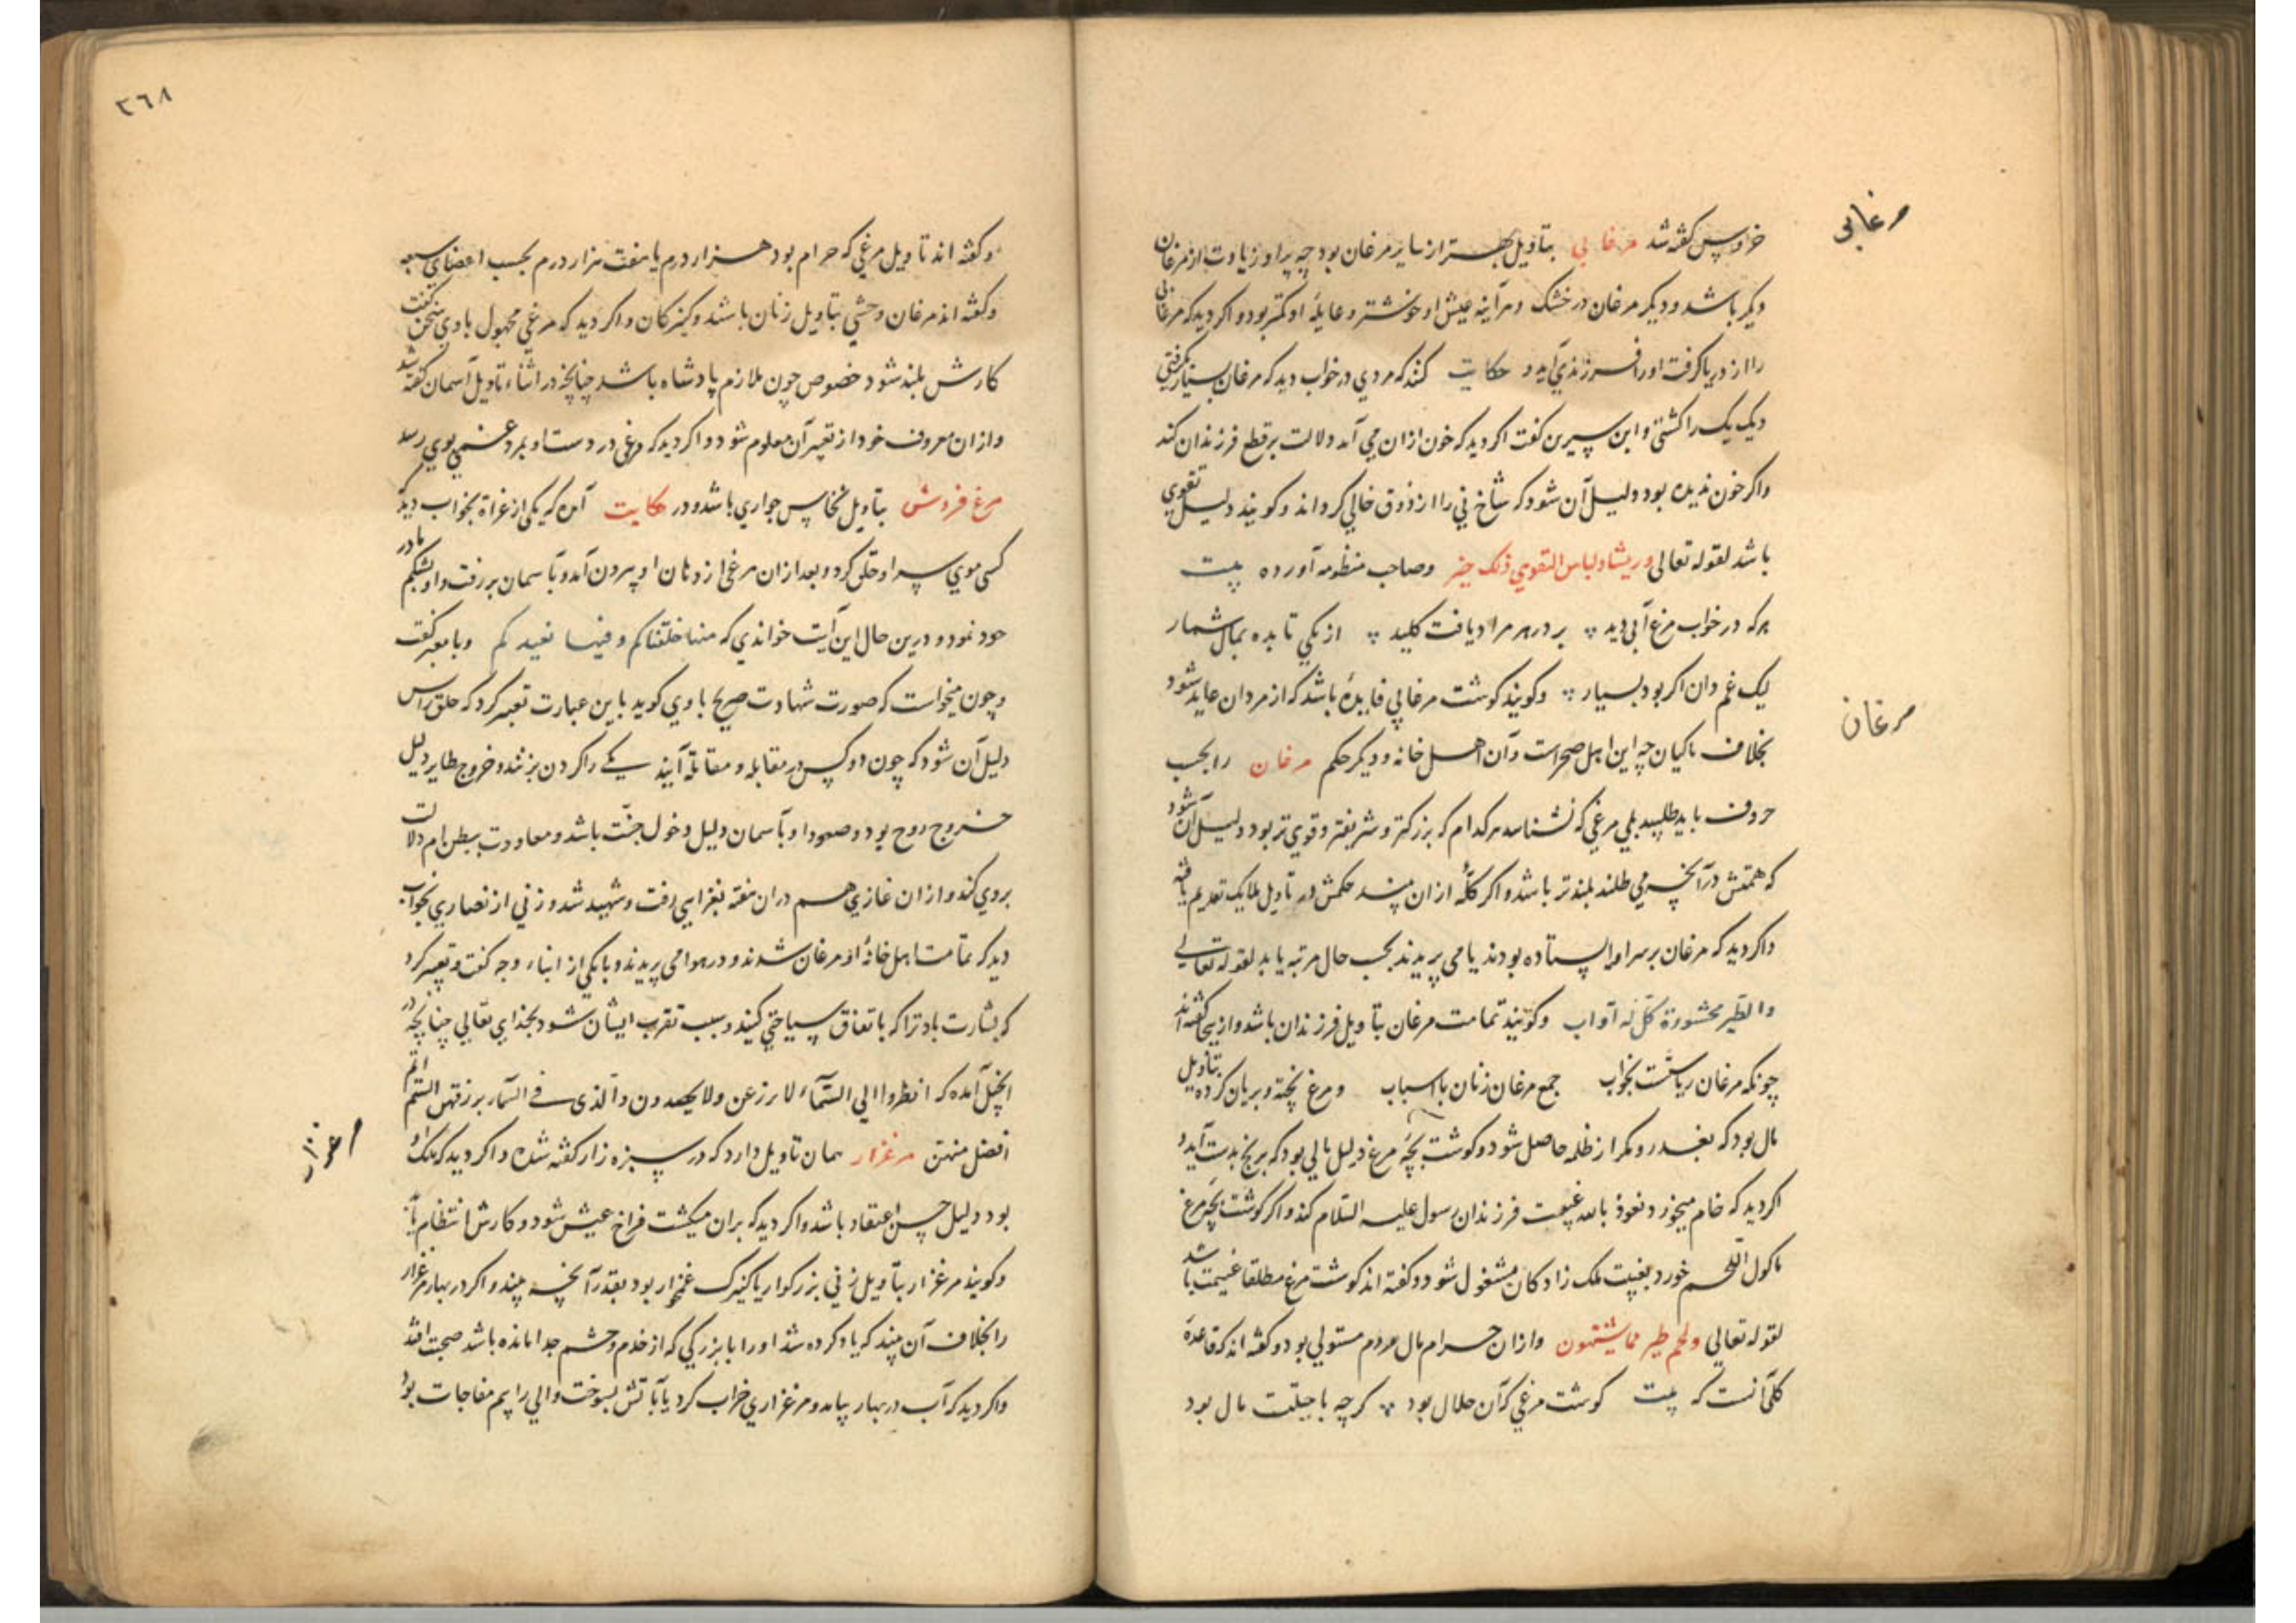 مرغابی
خروس گفته شد مرغابی بتاویل بهتر از سایر مرغان بود چه پر او زیادت از مرغان
دیگر باشد و دیگر مرغان در خشک و هر آینه عیش او خوشتر و عایله او کمتر بود و اکر دید که مرغابی
را از دریا کرفت او را فرزندی آید و حکایت کنند که مردی در خواب دید که مرغان بسیار کرفتی
و یک یک را کشتی و ابن سیرین کفت اکر دید که خون ازان می آمد دلالت بر قطع فرزندان کند
واکر خون ندیده بود دلیل آن شود که شاخ نی را از ذوق خالی کرداند و کویند دلیل تقوی
باشد لقوله تعالی وریشا ولباس التقوی ذلک خیر وصاحب منظومه آورده بیت
هرکه در خواب مرغ آبی دید بر در هر مراد یافت کلید از یکی تا بده بمال شمار
لیک غم دان اکر بود بسیار وکویند کوشت مرغابی فایدهٔ باشد که از مردان عاید شود
مرغان
بخلاف ماکیان چه این اهل صحراست و آن اهل خانه و دیکر حکم مرغان را بحسب
حروف باید طلبید بلی مرغی که نشناسد هرکدام که بزرکتر و شریفتر و قوی تر بود دلیل آن شود
که همتش در آنچه می طلبند بلندتر باشد و اکر کلهٔ ازان بیند حکمش در تاویل ملایک تقدیم یافته
واکر دید که مرغان بر سر او ایستاده بودند یا می پریدند بحسب حال مرتبه یابد لقوله تعالی
والطیر محشورة کل له آواب وکویند تمامت مرغان بتاویل فرزندان باشد و از پنجا کفته اند
چونکه مرغان ریاستست بخواب جمع مرغان زنان بااسباب و مرغ پخته و بریان کرده بتاویل
مال بود که بغدر و مکر از ظلمه حاصل شود و کوشت بچهٔ مرغ دلیل مالی بود که برنج بدست آید و
اکر دید که خام میخورد نعوذ بالله غیبت فرزندان رسول علیه السلام کند و اکر کوشت بچهٔ مرغ
ماکول اللحم خورد بغیبت ملک زادکان مشغول شود و کفته اند کوشت مرغ مطلقا غنیمت باشد
لقوله تعالی ولحم طیر مما یشتهون وازان حرام مال مردم مستولی بود و کفته اند که قاعدهٔ
کلی آنست که بیت کوشت مرغی کآن حلال بود کرچه با حیلتت مال بود
٢٦٨
و کفته اند تاویل مرغی که حرام بود هزار درم یا هفت هزار درم بحسب اعضای سبعه
وکفته اند مرغان وحشی بتاویل زنان باشند و کنیزکان و اکر دید که مرغی مجهول با وی سخن کفت
کارش بلند شود خصوص چون ملازم پادشاه باشد چنانچه در اثناء تاویل آسمان کفته شد
وازان معروف خود از تعبیر آن معلوم شود و اکر دید که مرغی در دست او بمرد غمی بوی رسد
مرغ فروش بتاویل نخاس جواری باشد و در حکایت آمده که یکی از غزاة بخواب دید که
کسی موی سر او حلق کرد و بعد ازان مرغی از دهان او بیرون آمد و بآسمان بر رفت و او بشکم مادر
خود نمود و درین حال این آیت خواندی که منها خلقناکم وفیها نعیدکم وبا معبر کفت
وچون میخواست که صورت شهادت صریح با وی کوید باین عبارت تعبیر کرد که حلق راس
دلیل آن شود که چون دو کس در مقابله و مقاتله آیند یکی را کردن بزنند و خروج طایر دلیل
خروج روح بود و صعود او بآسمان دلیل دخول جنت باشد و معاودت ببطن ام دلالت
بروی کند و ازان غازی هم دران هفته بغزایی رفت و شهید شد و زنی از نصاری بخواب
دید که تمامت اهل خانهٔ او مرغان شدند و در هوا می پریدند و با یکی از ابناء وجه کفت و تعبیر کرد
که بشارت باد ترا که باتفاق سیاحتی کنید و سبب تقرب ایشان شود بخدای تعالی چنانچه در
انجیل آمده که انظروا الی السماء لا یزرعن ولا یحصدون والذی فی السماء یرزقهن الستم انتم
مرغزار
افضل منهن مرغزار همان تاویل دارد که در سبزه زار کفته شده و اکر دید که ملک او
بود دلیل حسن اعتقاد باشد و اکر دید که بران میکشت فراخ عیش شود و کارش انتظام یابد
وکویند مرغزار بتاویل زنی بزرکوار یا کنیزک غمخوار بود بقدر آنچه بیند و اکر در بهار مرغزار
را بخلاف آن بیند که یاد کرده شد او را با بزرکی که از خدم و حشم جدا مانده باشد صحبت افتد
واکر دید که آب در بهار بیامد و مرغزاری خراب کرد یا بآتش بسوخت والی را بیم مفاجات بود